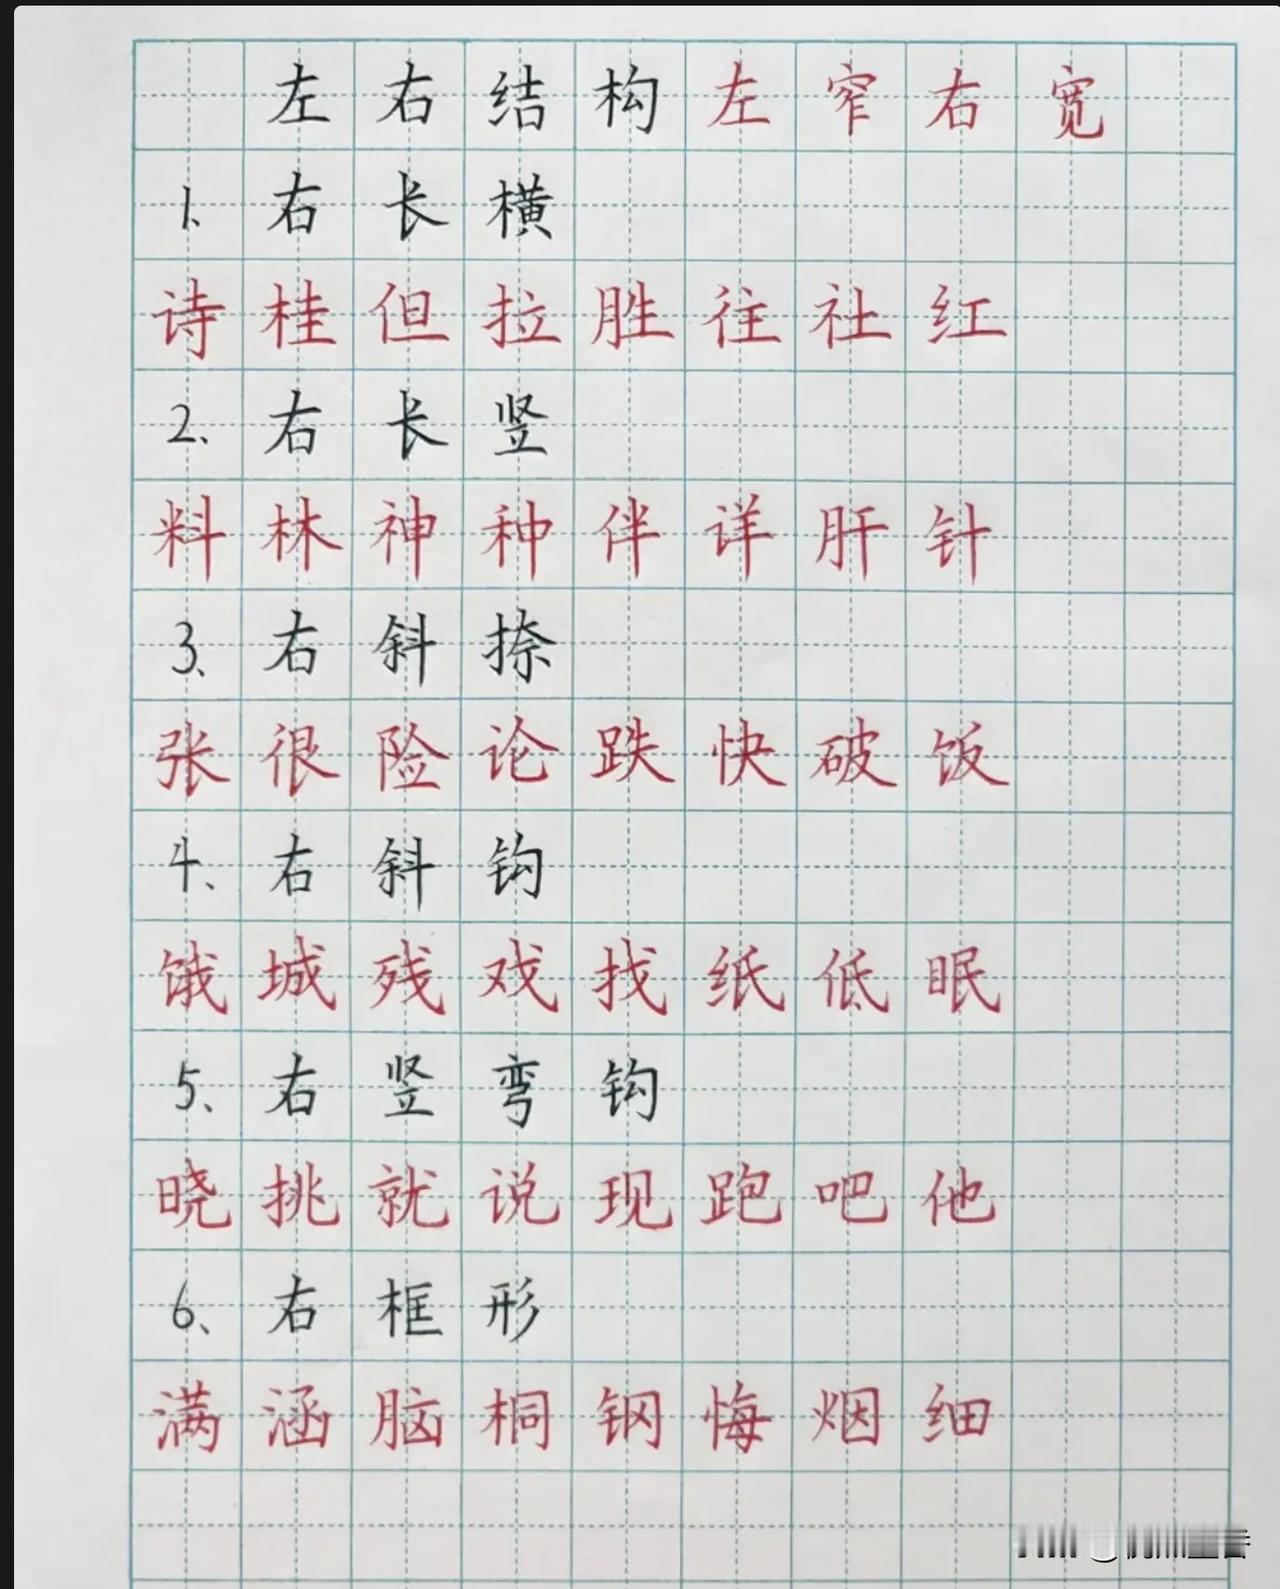 左右结构左窄右宽
1、右长横
诗桂但拉胜往社红
2、右长竖
料林神种伴详肝针
3、右斜捺
张很险论跌快破饭
4、右斜钩
饿城残戏找纸低眠
5、右竖弯钩
晓挑就说现跑吧他
6、右框形
满涵脑桐钢悔烟细